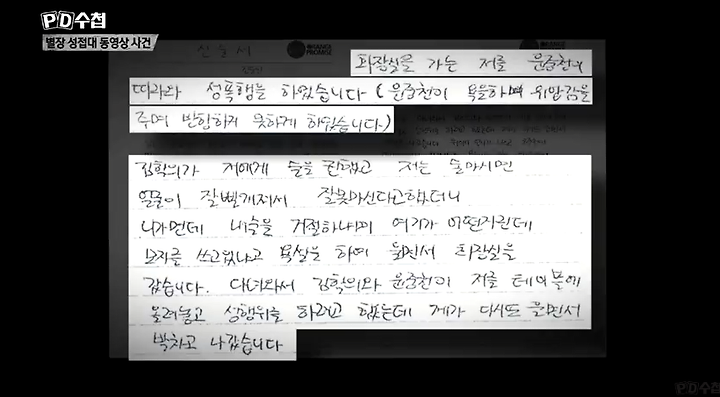 PD수첩
별장 성접대 동영상 사건
진술서
ORANGE PROMISE
화장실을 가는 저를 윤중천이
따라와 성폭행을 하였습니다 (윤중천이 욕을하며 위압감을
주며 반항하지 못하게 하였습니다.)
김학의가 저에게 술을 권했고 저는 술마시면
얼굴이 잘빨개져서 잘못마신다고했더니
니가먼데 내술을 거절하냐며 여기가 어떤자린데
모자를 쓰고왔냐고 욕설을 하여 울면서 화장실을
갔습니다. 다녀와서 김학의와 윤중천이 저를 테이블에
올려놓고 성행위를 하려고 했는데 제가 다시또 울면서
박차고 나갔습니다
PD수첩